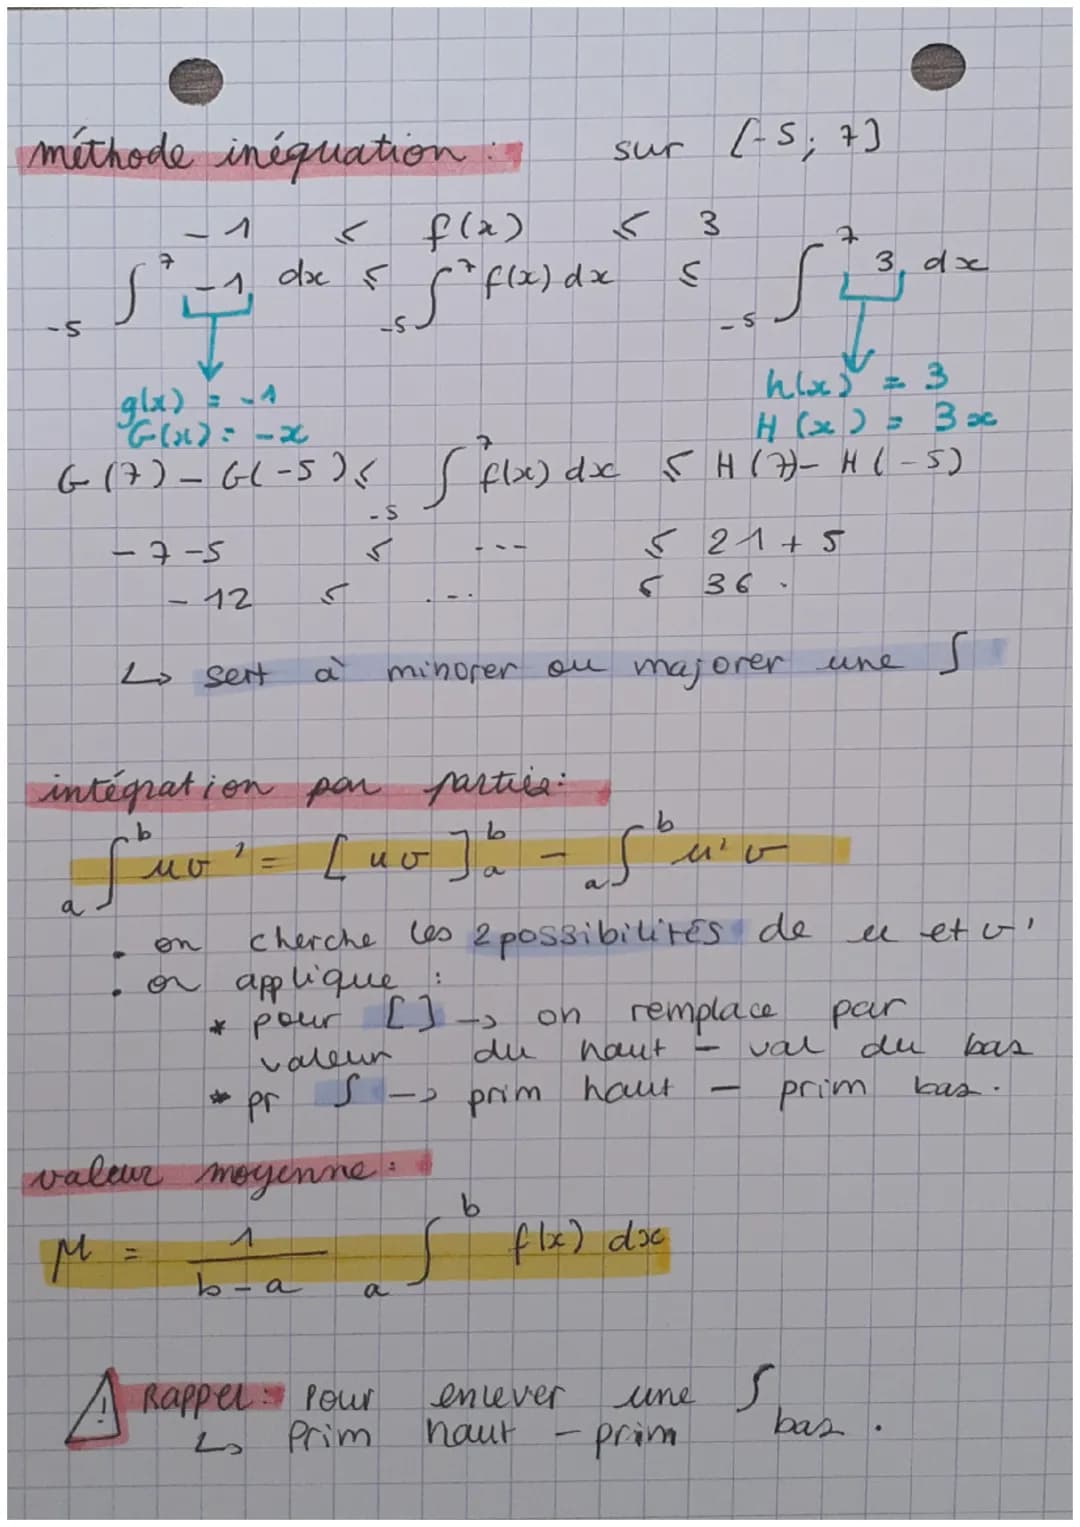 méthode inéquation : sur [-5; 7]
-1 ≤ f(x) ≤ 3
∫_{-5}^{7} -1 dx ≤ ∫_{-5}^{7} f(x) dx ≤ ∫_{-5}^{7} 3 dx
g(x) = -1 h(x) = 3
G(x) = -x H(x) = 3x
G(7) - G(-5) ≤ ∫_{-5}^{7} f(x) dx ≤ H(7) - H(-5)
-7-5 ≤ --- ≤ 21+5
-12 ≤ ... ≤ 36.
↳ sert à minorer ou majorer une ∫
intégration par parties:
∫_{a}^{b} uv' = [uv]_{a}^{b} - ∫_{a}^{b} u'v
• on cherche les 2 possibilités de u et v'
• on applique :
* pour [] → on remplace par
valeur du haut - val du bas
* pr ∫ → prim haut - prim bas.
valeur moyenne :
M = 1/(b-a) ∫_{a}^{b} f(x) dx
⚠ Rappel : Pour enlever une ∫
↳ Prim haut - prim bas.